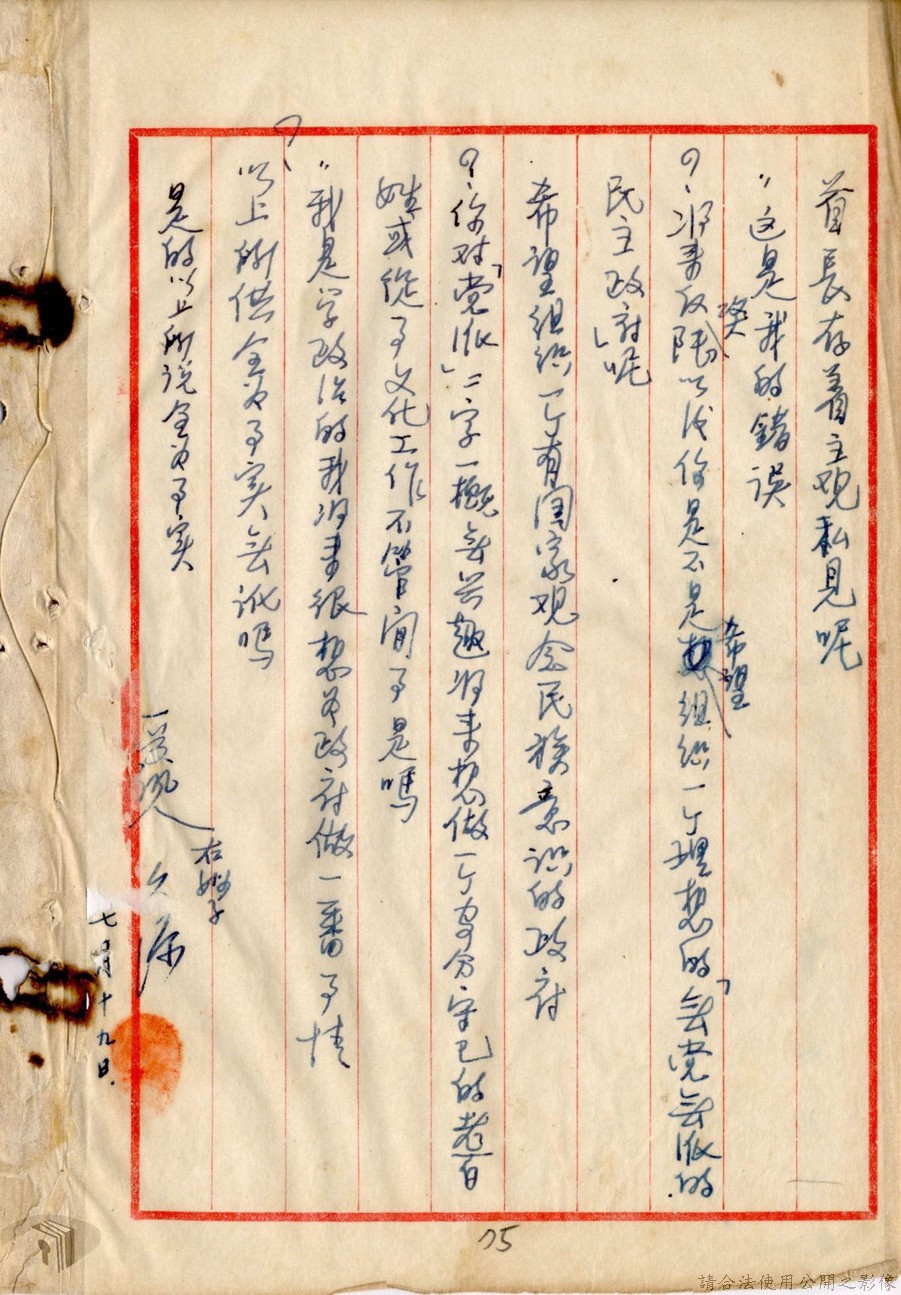 首長存着主观私見呢
〃这是我的錯误
问、将来反攻陆以后你是不是希望組織一个理想的「無党無派的
民主政府」呢
、希望組織一个有国家观念民族意識的政府
问、你对「党派」二字一概無兴趣将来想做一个安分守己的老百
姓或從事文化工作不管闲事是嗎
〃我是学政治的我将来很想为政府做一番事情
问、以上所供全为事实無訛嗎
是的以上所说全为事实
右拇子
七月十九日.
75
請合法使用公開之影像